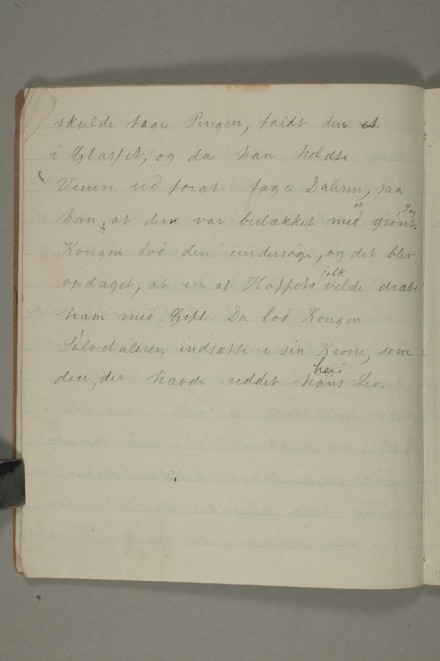 skulde tage Pengen, faldt den et
i Glasset, og da han heldte
Vinen ud forat fage Daleren, saa
han, at den var bedækket med grønt.
Kongen lod den undersøge, og det blev
opdaget, at en af Hoffets Folk vilde dræbe
ham med Gift. Da lod Kongen
Sølvdaleren indsætte i sin Krone, som
den, der havde reddet hans Liv.